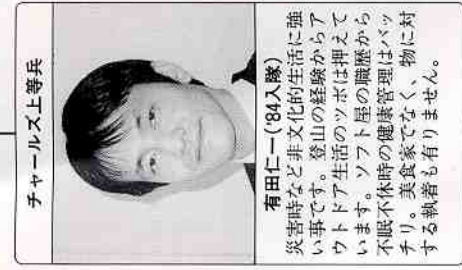 チャールズ上等兵
有田仁一('84入隊)
災害時など非文化的生活に強
い事です。登山の経験からア
ウトドア生活のツボは押えて
います。ソフト屋の職歴から
不眠不休時の健康管理はバッ
チリ。美食家でなく、物に対
する執着も有りません。